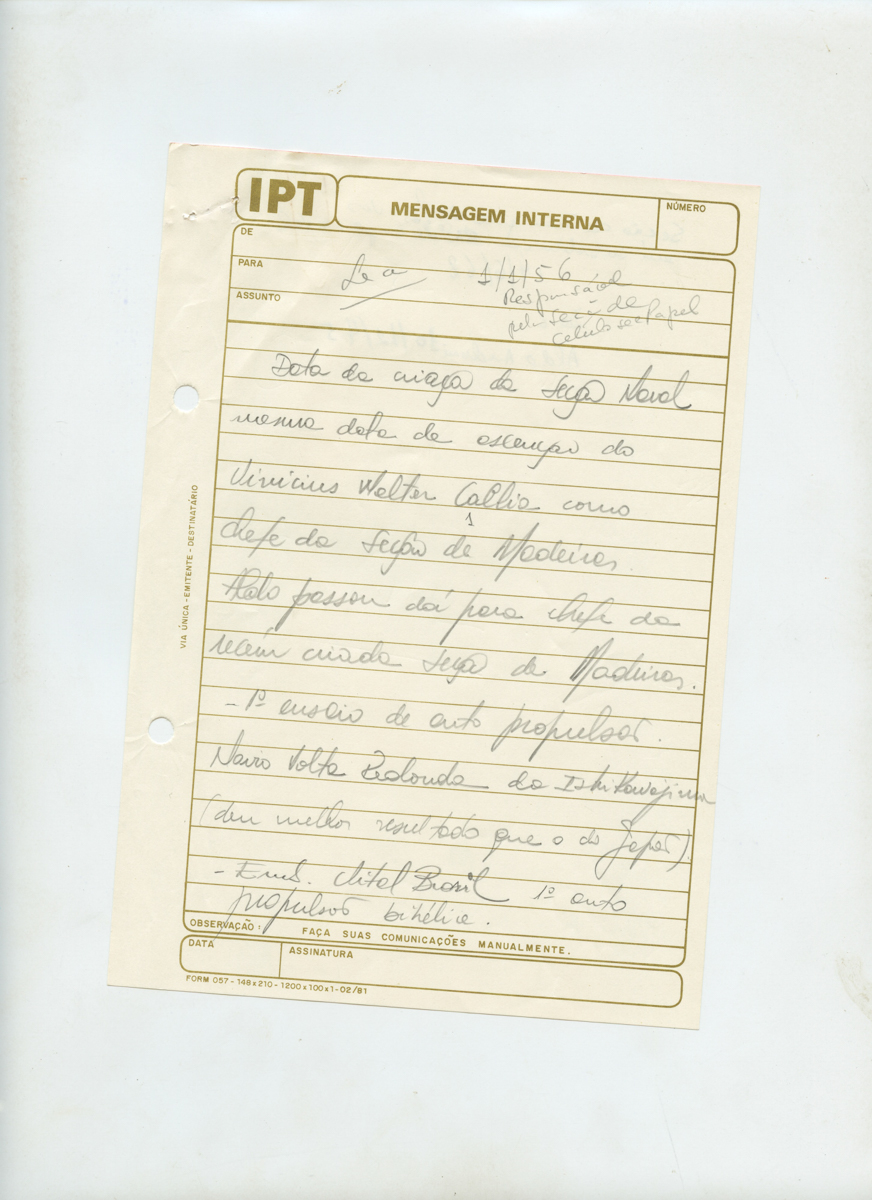 IPT
MENSAGEM INTERNA
NÚMERO
DE
PARA
Léa 1/1/56
ASSUNTO
Responsável
pela Seção de
Celulose e Papel
Data da criação da Seção Naval
mesma data da ascenção do
Vinicius Walter Callia como
1
chefe da Seção de Madeiras.
Aldo passou daí para chefe da
recém criada Seção de Madeiras.
- 1º ensaio de auto propulsor.
Navio Volta Redonda da Ishikawajima
(deu melhor resultado que o do Japão).
- Emb. Mital Brasil 1º auto
propulsor bihélice.
OBSERVAÇÃO: FAÇA SUAS COMUNICAÇÕES MANUALMENTE.
DATA
ASSINATURA
FORM 057 - 148x210 - 1200x100x1 - 02/81
VIA ÚNICA - EMITENTE - DESTINATÁRIO